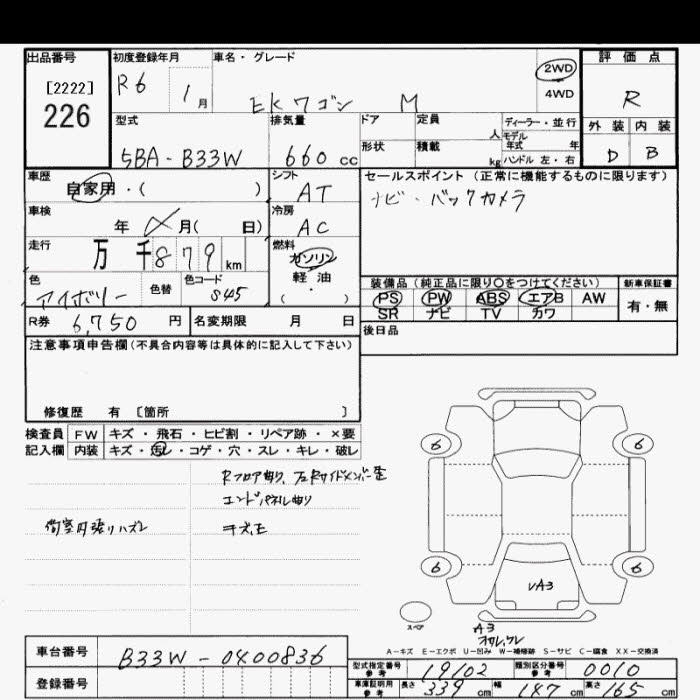 出品番号
[2222]
226
初度登録年月
R6 1月
車名・グレード
EKワゴン M
2WD
4WD
評価点
R
外装 内装
D B
型式
5BA-B33W
排気量
660 cc
ドア
形状
定員
人
積載
kg
ディーラー・並行
モデル
年式 年
ハンドル 左・右
車歴
自家用・( )
シフト
AT
セールスポイント(正常に機能するものに限ります)
ナビ・バックカメラ
車検
年 月( 日)
冷房
AC
走行
万 千 879 km
燃料
ガソリン
軽油
( ・ )
色
アイボリー
色替
色コード
S45
装備品(純正品に限り○をつけてください)
PS PW ABS エアB AW
SR ナビ TV カワ
新車保証書
有・無
R券 6,750 円
名変期限 月 日
後日品
注意事項申告欄(不具合内容等は具体的に記入して下さい)
修復歴 有 [箇所 ]
検査員 FW キズ・飛石・ヒビ割・リペア跡・×要
記入欄 内装 キズ・汚レ・コゲ・穴・スレ・キレ・破レ
Rフロア曲り、左Rサイドメンバー歪
エンドパネル曲り
荷室内張りハズレ
キズ、凹
6 6
6 6
VA3
スペア
A3
A-キズ E-エクボ U-凹み W-補修跡 S-サビ C-腐食 XX-交換済
車台番号
B33W-0400836
登録番号
型式指定番号
参考
19102
類別区分番号
参考
0010
車庫証明用
参考
長さ 339 cm 幅 147 cm 高さ 165 cm